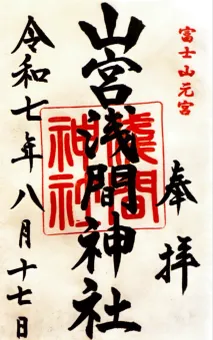 富士山元宮
奉拝
山宮浅間神社
浅間神社
令和七年八月十七日